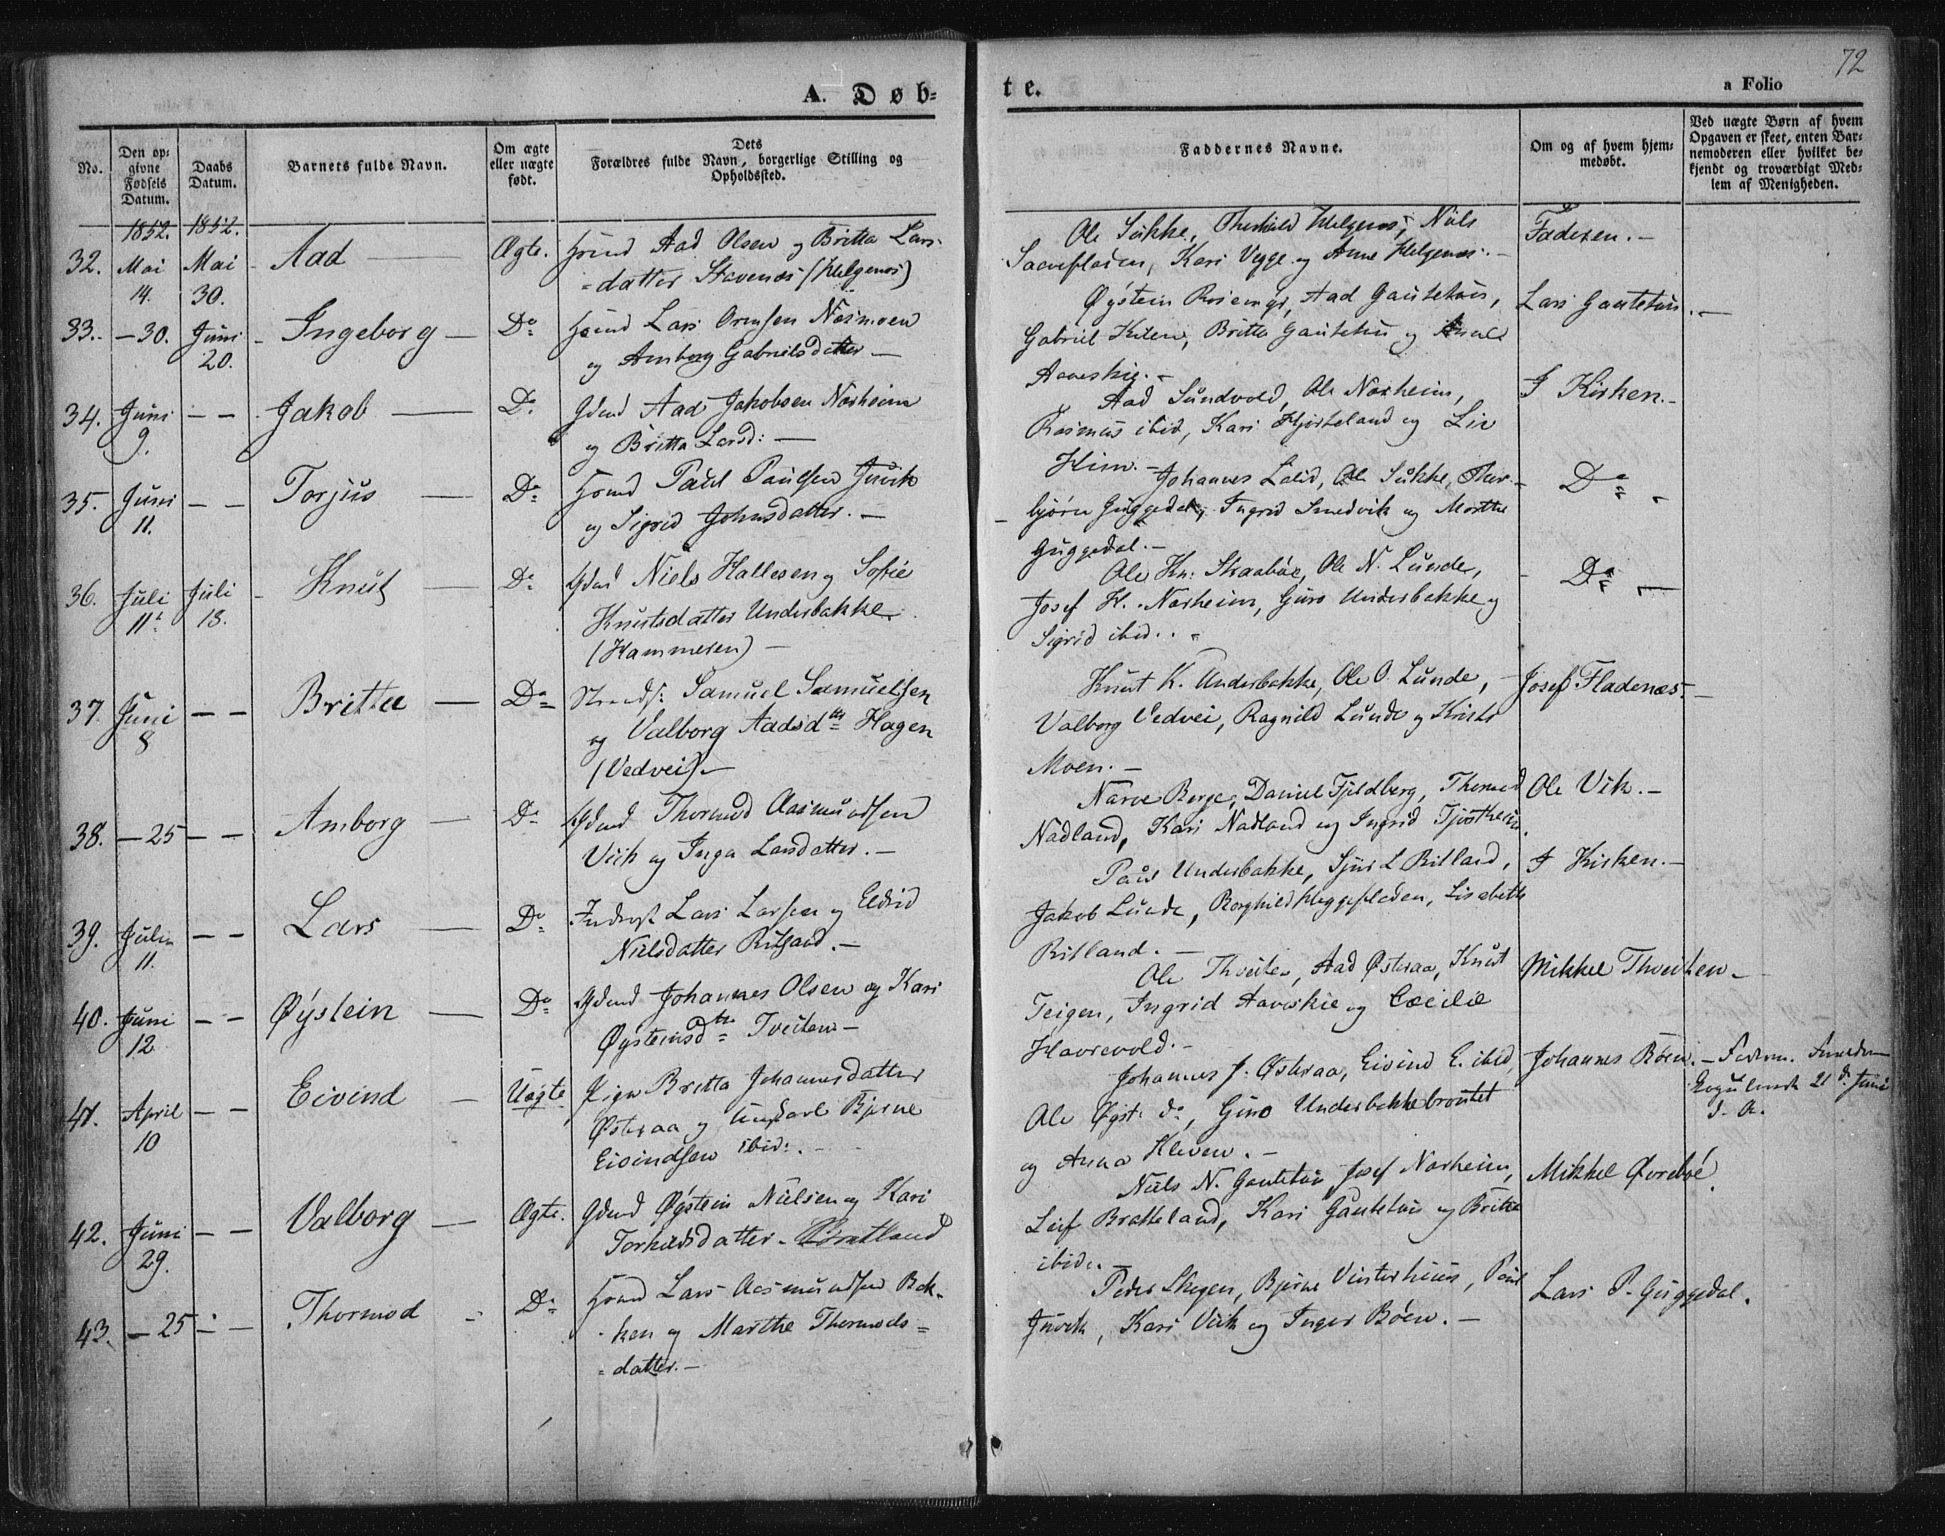 72
A. Døb-
te.
a Folio
No.
Den op-
givne
Fødsels
Datum.
Daabs
Datum.
Barnets fulde Navn.
Om ægte
eller uægte
født.
Dets
Forældres fulde Navn, borgerlige Stilling og
Opholdssted.
Faddernes Navne.
Om og af hvem hjem-
medøbt.
Ved uægte Børn af hvem
Opgaven er skeet, enten Bar-
nemoderen eller hvilket be-
kjendt og troværdigt Med-
lem af Menigheden.
1852. 1852.
32. Mai 14. Mai 30. Aad — Ægte. Hsmd Aad Olsen og Britta Lars-
datter Stavenæs (Helgenæs)
Ole Sukke, Helgenæs, Niels
Kari Vegge og Anne Helgenæs.-
Faderen.-
33. -30. Juni 20. Ingeborg — Do Hsmd Lars Ormsen Nesmoen
og Amborg Gabrielsdatter —
Øystein Aad Gautetun,
Gabriel Kilen, Britta Gautetun og
Aareskie.-
Lars Gautetun.
34. Juni 9. — — Jakob — Do Gdmd Aad Jakobsen Norheim
og Britta Larsd: —
Aad Sundvold, Ole Norheim,
Rasmus ibid, Kari Hjorteland og Liv
Hiim.-
I Kirken.-
35. Juni 11. — — Torjus — Do Hsmd Paul Paulsen Juvik
og Sigrid Johnsdatter.-
Johannes Lalid, Ole Sukke, Thor-
bjørn Guggedal, Ingrid Smedvik og Marthe
Guggedal.-
Do
36. Juli 11 Juli 18. Knut — Do Gdmd Niels Hallesen og Sofie
Knutsdatter Underbakke
(Hammeren) —
Ole Kn: Straabøe, Ole N. Lunde,
Josef H. Norheim, Guro Underbakke og
Sigrid ibid..
Do
37. Juni 8 — — Britta — Do Samuel Samuelsen
og Valborg Aadsdtr Hagen
(Vedvei).-
Knut K. Underbakke, Ole O. Lunde,
Valborg Vedvei, Ragnild Lunde og Kristi
Moen.-
Josef Fladenæs.
38. -25 — — Amborg — Do Gdmd Thormod Aasmundsen
Viik og Inga Larsdatter.-
Narve Berge, Daniel Fjeldberg, Thormod
Nadland, Kari Nadland og Ingrid Tjøstheim.
Ole Vik.-
39. Juli 11. — — Lars — Do Inderst Lars Larsen og Eldrid
Nielsdatter Ritland.-
Paul Underbakke, Sjur L Ritland,
Jakob Lunde, Borghild Heggefladen, Lisabeth
Ritland.-
I Kirken.-
40. Juni 12 — — Øystein — Do Gdmd Johannes Olsen og Kari
Øysteinsdtr Tveiten-
Ole Thveiten, Aad Østeraa, Knut
Teigen, Ingrid Aareskie og Cecilie
Havrevold.-
Mikkel Thveiten-
41. April 10 — — Eivind — Uægte Pige Britta Johannesdatter
Østeraa og Ungkarl Bjørne
Eivindsen ibid:.
Johannes J. Østeraa, Eivind E. ibid,
Ole Øyst. do, Guro Underbakkebrøutet
og Anna Kleven.-
Johannes Bøen.
21de Juni
d. A.
42. Juni 29. — — Valborg — Ægte. Gdmd Øystein Nielsen og Kari
Torkelsdatter Bratland
Niels N. Gautetun Josef Norheim,
Leif Bratteland, Kari Gautetun og Britta
ibid.-
Mikkel Øvrebøe.
43. -25 — — Thormod - Do Hsmd Lars Aasmundsen Bak-
ken og Marthe Thormods-
datter.-
Peder Skogen, Bjørne Vinterhuus, Paul
Juvik, Kari Viik og Inger Bøen.-
Lars P. Guggedal.